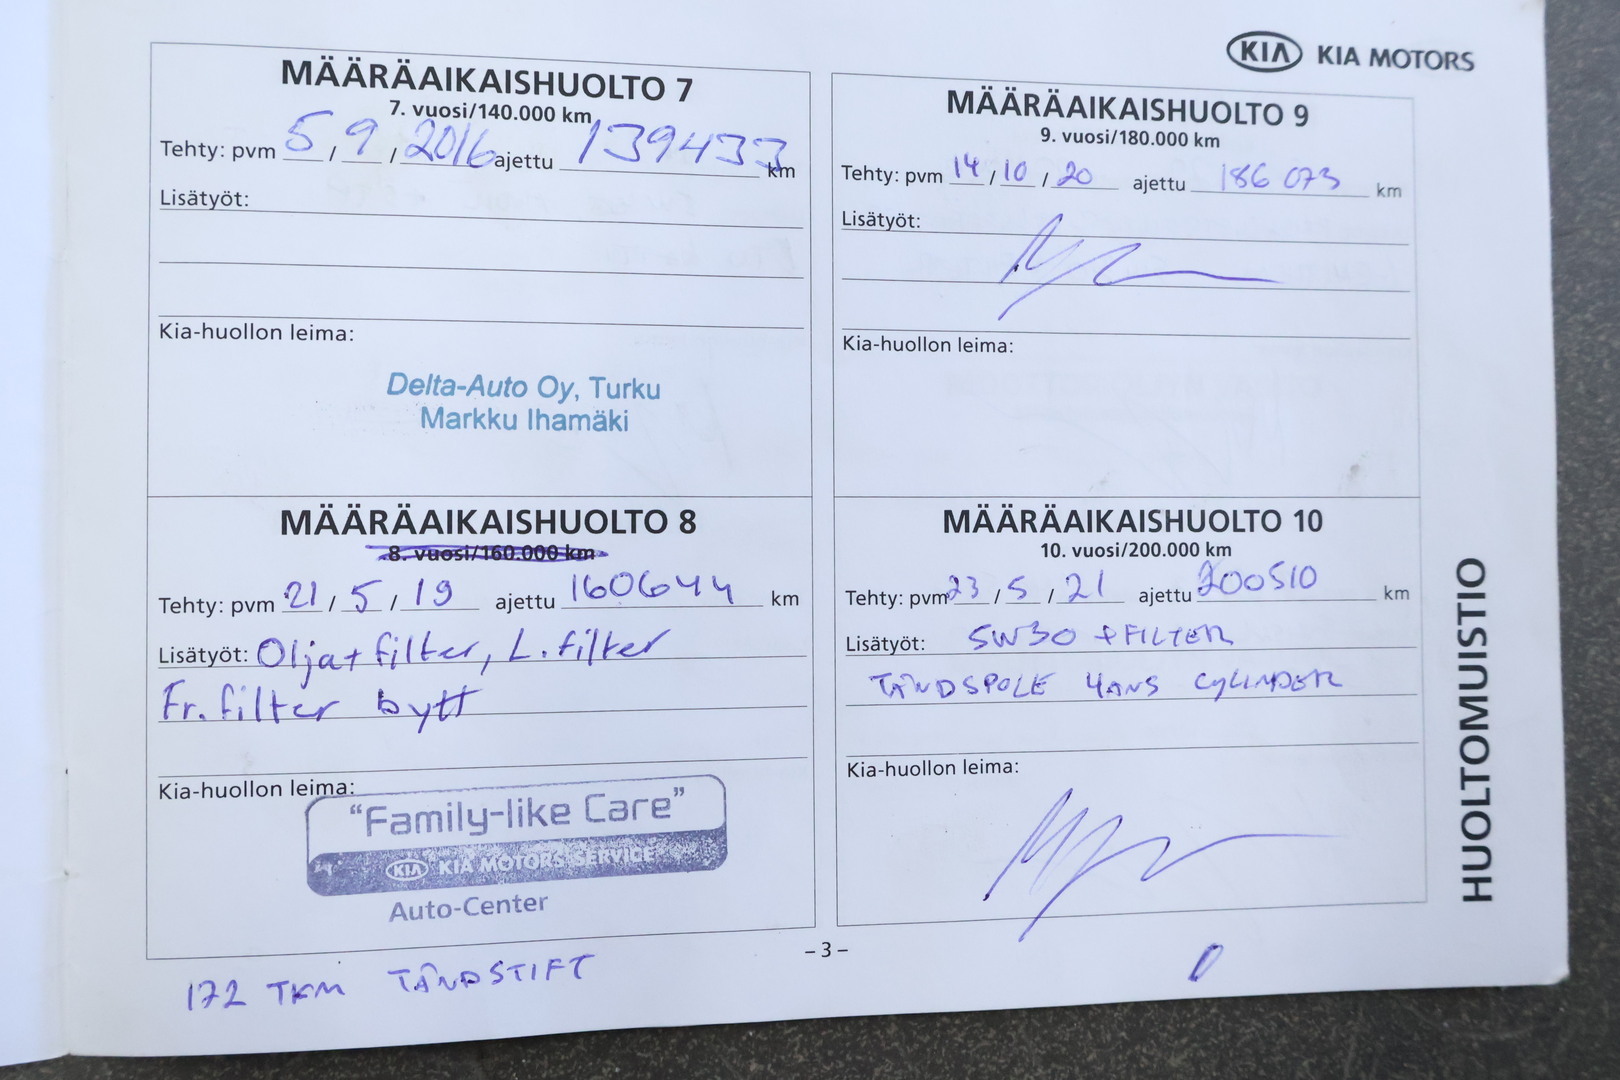 KIA KIA MOTORS
MÄÄRÄAIKAISHUOLTO 7
7. vuosi/140.000 km
Tehty: pvm 5 / 9 / 2016 ajettu 139433 km
Lisätyöt:
Kia-huollon leima:
Delta-Auto Oy, Turku
Markku Ihamäki
MÄÄRÄAIKAISHUOLTO 8
8. vuosi/160.000 km
Tehty: pvm 21 / 5 / 19 ajettu 160644 km
Lisätyöt: Olja + filter, L. filter
Fr. filter bytt
Kia-huollon leima:
"Family-like Care"
KIA KIA MOTORS SERVICE
Auto-Center
172 TKM TÄNDSTIFT
MÄÄRÄAIKAISHUOLTO 9
9. vuosi/180.000 km
Tehty: pvm 14 / 10 / 20 ajettu 186 073 km
Lisätyöt:
Kia-huollon leima:
MÄÄRÄAIKAISHUOLTO 10
10. vuosi/200.000 km
Tehty: pvm 23 / 5 / 21 ajettu 200510 km
Lisätyöt: 5W30 + FILTER
TÄNDSPOLE 4ANS CYLINDER
Kia-huollon leima:
- 3 -
HUOLTOMUISTIO